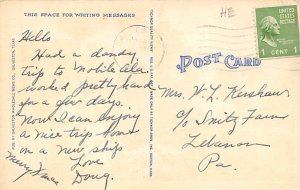 THIS SPACE FOR WRITING MESSAGES
HE
UNITED STATES
POSTAGE
1 CENT 1
POST CARD
Hello
Had a dandy
trip to Mobile Ala
worked pretty hard
for a few days.
Now I can enjoy
a nice trip home
on a new ship
Love
Doug.
Merry Xmas
Mrs. W. L. Kershaw
c/o Smitz Farm
Lebanon
Pa.